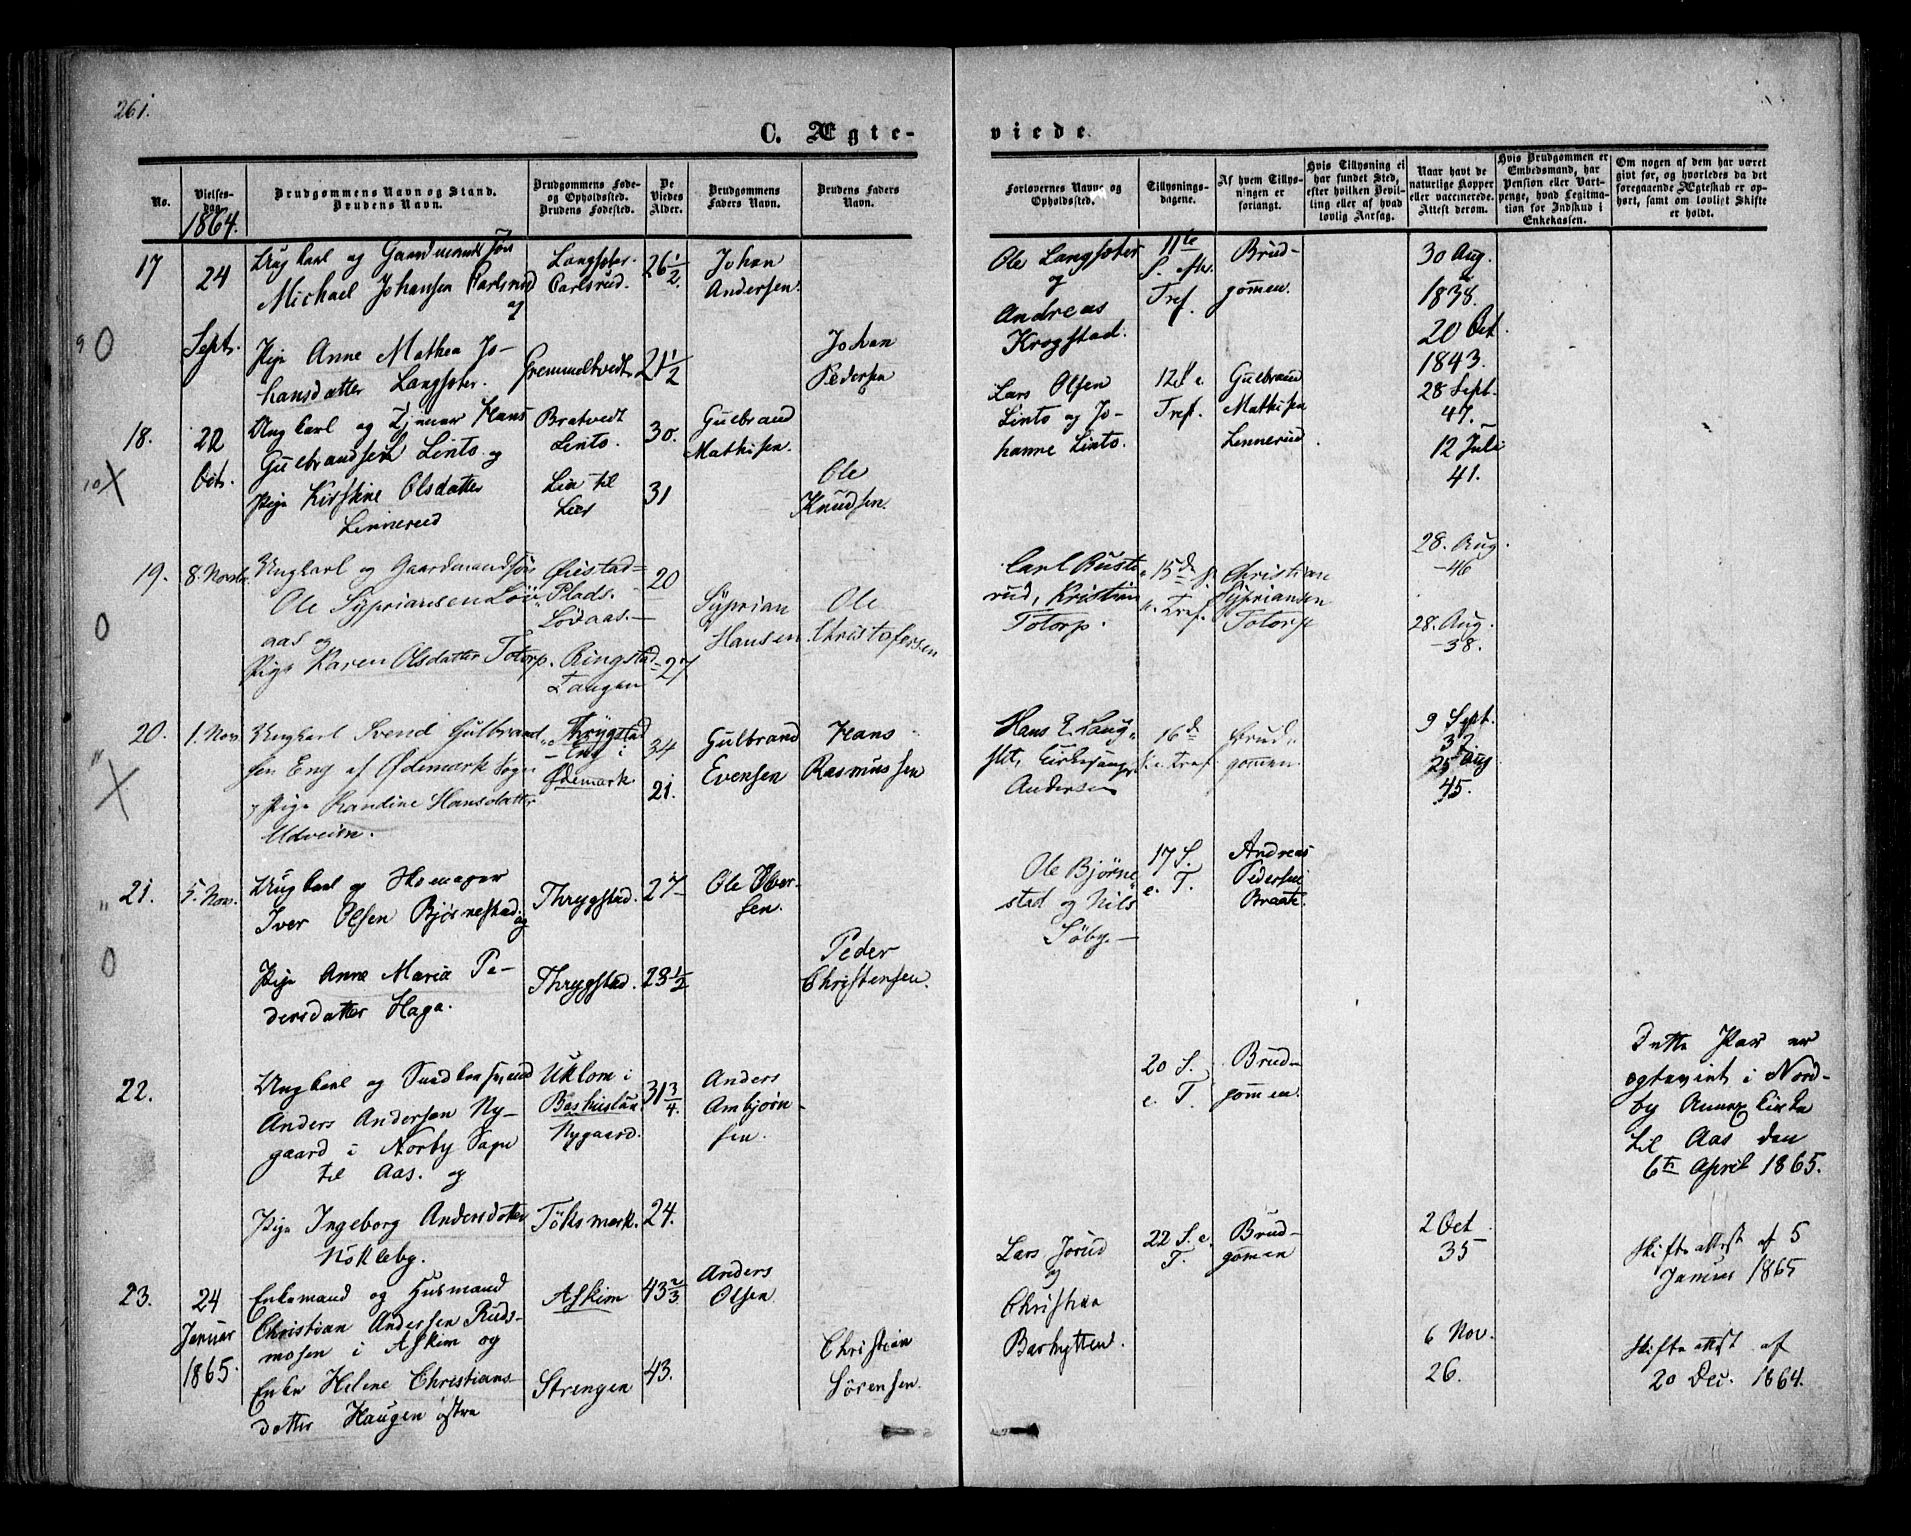 261.
C. Ægte-
viede.
No.
Vielses-
dag.
1864.
Brudgommens Navn og Stand.
Brudens Navn.
Brudgommens Føde-
og Opholdssted.
Brudens Fødested.
De
Viedes
Alder.
Brudgommens
Faders Navn.
Brudens Faders
Navn.
Forlovernes Navne og
Opholdssted.
Tillysnings-
dagene.
Af hvem Tillys-
ningen er
forlangt.
Hvis Tillysning ei
har fundet Sted,
efter hvilken Bevil-
ling eller af hvad
lovlig Aarsag.
Naar havt de
naturlige Kopper
eller vaccinerede.
Attest derom.
Hvis Brudgommen er
Embedsmand, har
Pension eller Vart-
penge, hvad Legitima-
tion for Indskud i
Enkekassen.
Om nogen af dem har været
givt før, og hvorledes da det
foregaaende Ægteskab er op-
hørt, samt om lovligt Skifte
er holdt.
17
24
Sept.
9 O
Ungkarl og Gaardmandssøn
Michael Johansen Carlsrud
og
Pige Anne Mathea Jo-
hansdatter Langsæter.
Langsæter.
Carlsrud.
Gremmeltvedt
26 1/2
21 1/2
Johan
Andersen
Johan
Pedersen
Ole Langsæter
og
Andreas
Krogstad.
11te
S. efter
Tref.
Brud-
gommen.
30 Aug.
1838.
20 Oct
1843.
18.
22
Oct.
10 X
Ungkarl og Hans
Gulbrandsen Linto og
Pige Kirstine Olsdatter
Linnerud
Bratvedt
Linto.
Lia til
30.
31
Gulbrand
Mathisen.
Ole
Knudsen.
Lars Olsen
Linto og Jo-
hanne Linto.
12te S. e.
Tref.
Gulbrand
Mathisen
Linnerud
28 Sept.
47.
12 Juli
41.
19.
8. Novbr.
O
Ungkarl og Gaardmandssøn
Ole Syprianssen Löv-
aas og
Pige Karen Olsdatter Totorp.
Øiestad-
Plads.
Lövaas.
Ringstad
Tangen
20
27
Syprian
Hansen
Ole
Christofersen
Carl Rusto
rud, Kristian
Totorp.
15de S.
e. Tref.
Christian
Sypriansen
Totorp
28. Aug.
-46
28. Aug.
-38.
20.
1. Nov.
" X
Ungkarl Svend Gulbrand-
sen Eng af Ødemark Sogn
og Pige Randine Hansdatter
Udveien.
Thrygstad
Eng i
Ødemark.
34
21.
Gulbrand
Evensen
Hans
Rasmussen
Hans E. Laug-
stet, Kirkesanger
Andersen
16de
S. e. Tref
Brud-
gommen.
9 Sept.
37
25 Aug
45.
21.
5. Nov.
" O
Ungkarl og Skomager
Iver Olsen Bjørnestad og
Pige Anne Maria Pe-
dersdatter Haga.
Thrygstad.
Thrygstad.
27
23 1/2
Ole Iver-
sen.
Peder
Christensen.
Ole Bjørne-
stad og Nils
Söby.
17 S.
e. T.
Andreas
Pedersen
Braate.
22.
Ungkarl og
Anders Andersen Ny-
gaard i Norby Sogn
til Aas. og
Pige Ingeborg Andersdatter
Nökleby.
Uklom i
Nygaard.
Töksmark.
31 3/4.
24.
Anders
Ambjørn-
sen.
20 S.
e. T.
Brud-
gommen.
Dette Par er
ægteviet i Nord-
by Annex kirke
til Aas den
6te April 1865.
23.
24
Januar
1865.
Enkemand og Husmand
Christian Andersen Ruds-
mosen i Askim og
Enke Helene Christians-
datter Haugen østre
Askim
Strengen
43 2/3
43.
Anders
Olsen.
Christian
Sörensen.
Lars Jorud
og
Christian
Barhytten.
22 S. e.
T.
Brud-
gomen
2 Oct
35
6 Nov.
26.
Skifteattest af 5
Januar 1865
Skifte attest af
20 Dec. 1864.